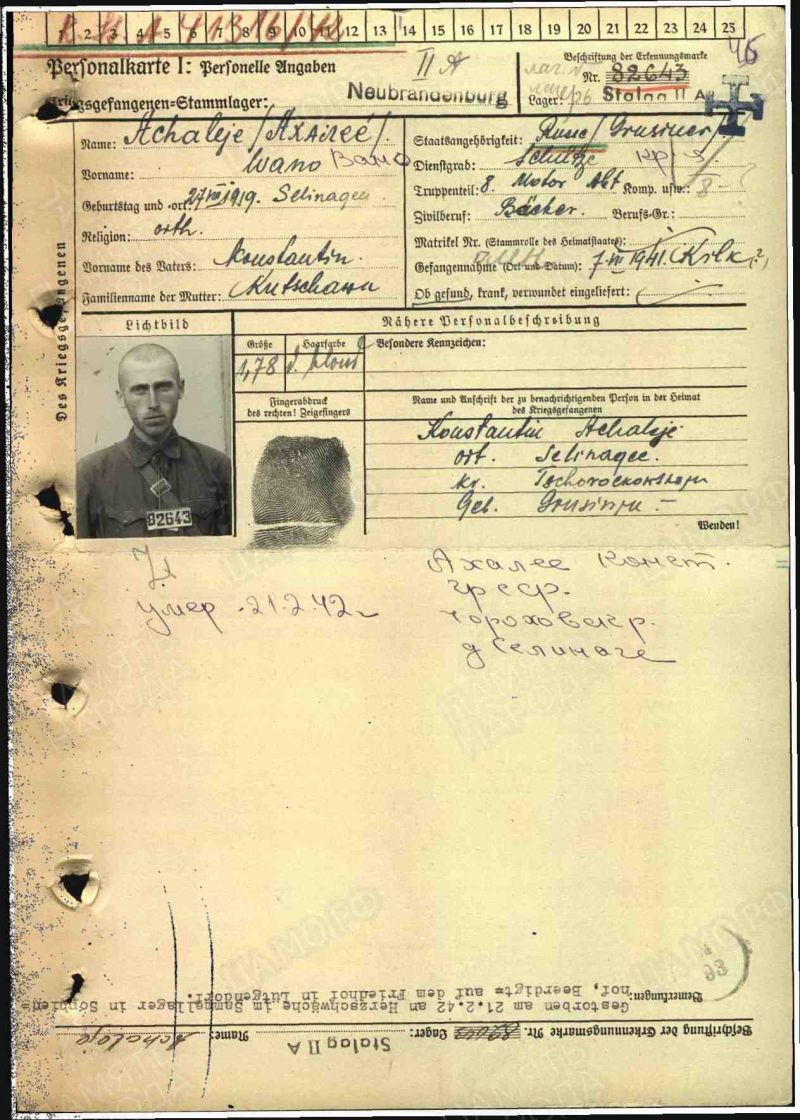 R. H. A 41316/42
1 2 3 4 5 6 7 8 9 10 11 12 13 14 15 16 17 18 19 20 21 22 23 24 25
Personalkarte I: Personelle Angaben
II A
Beschriftung der Erkennungsmarke
46
Nr. 82643
Kriegsgefangenen=Stammlager: Neubrandenburg
Lager: Stalag II A
Des Kriegsgefangenen
Name: Achaleje / Ахалеё/.
Vorname: Wano Вано
Geburtstag und =ort: 27 VIII 1919. Selinagee
Religion: orth.
Vorname des Vaters: Konstantin.
Familienname der Mutter: Kutschawa
Staatsangehörigkeit: Russe/ Grusiner/
Dienstgrad: Schütze кр-ц.
Truppenteil: 8. Motor Abt Komp. usw.: 8 -
Zivilberuf: Bäcker. Berufs=Gr.:
Matrikel Nr. (Stammrolle des Heimatstaates):
Gefangennahme (Ort und Datum): 1941.
Ob gesund, krank, verwundet eingeliefert:
Lichtbild
Nähere Personalbeschreibung
Größe Haarfarbe Besondere Kennzeichen:
1,78 d. blond
Fingerabdruck
des rechten! Zeigefingers
Name und Anschrift der zu benachrichtigenden Person in der Heimat
des Kriegsgefangenen
Konstantin Achaleje
ort. Selinagee.
kr.
Geb. Grusinju -
82643
Wenden!
умер -21.2.42г
Ахалее Конст.
гр ССР.
д Селинаге
93
Bemerkungen:
Gestorben am 21.2.42 an Herzschwäche im Sammellager in Sophien=
hof, Beerdigt= auf dem Friedhof in Lütgendorf.
Beschriftung der Erkennungsmarke Nr. 82643 Lager: Stalag II A Name: Achaleje